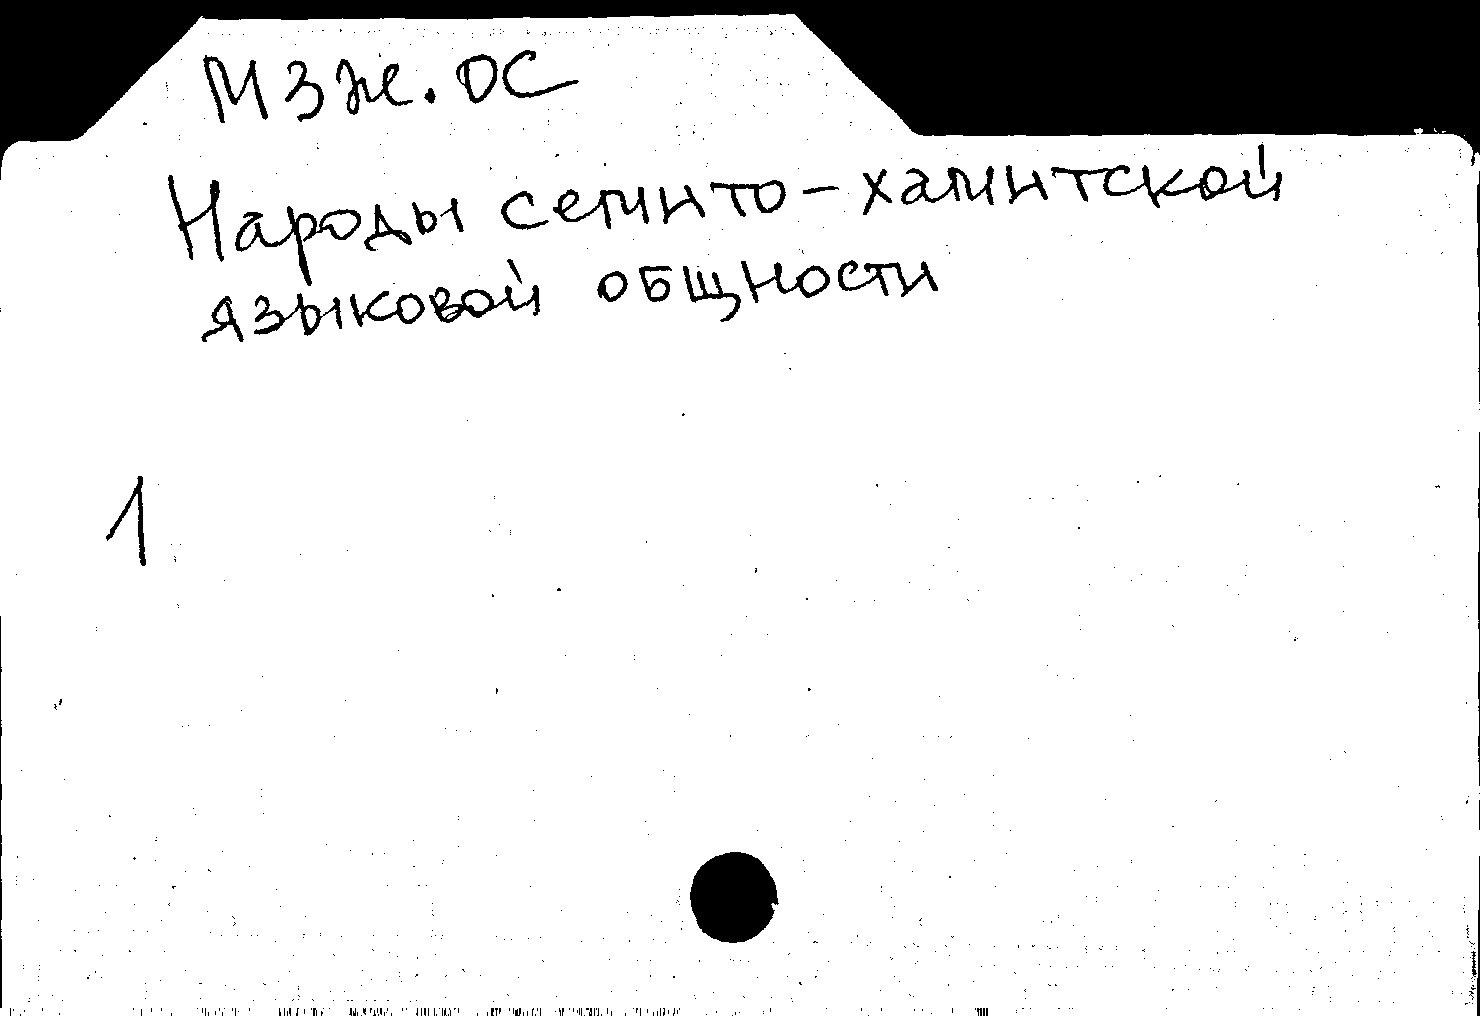 МЗж.ОС
Народы семито-хамитской
языковой общности
1